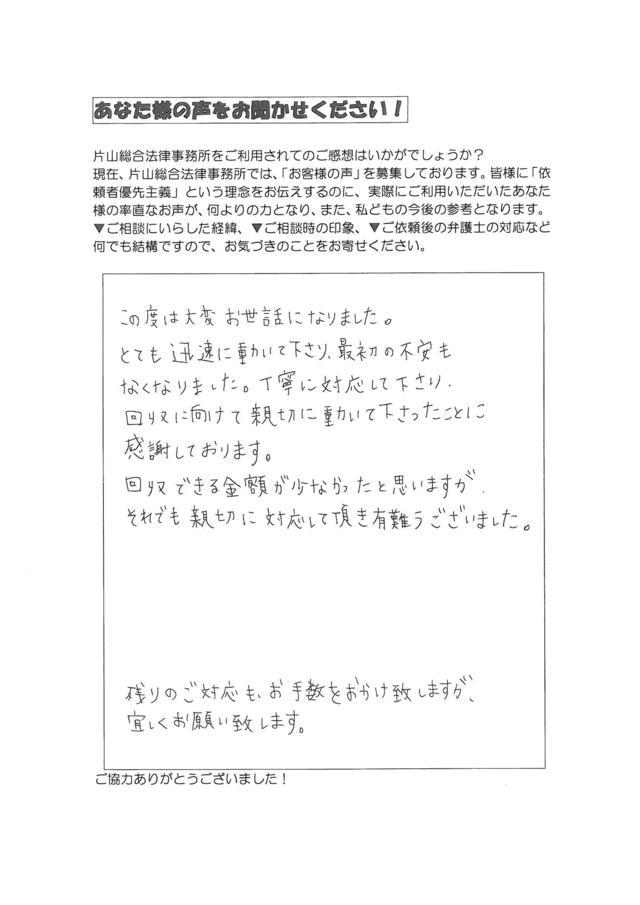 あなた様の声をお聞かせください！
片山総合法律事務所をご利用されてのご感想はいかがでしょうか？
現在、片山総合法律事務所では、「お客様の声」を募集しております。皆様に「依
頼者優先主義」という理念をお伝えするのに、実際にご利用いただいたあなた
様の率直なお声が、何よりの力となり、また、私どもの今後の参考となります。
▼ご相談にいらした経緯、▼ご相談時の印象、▼ご依頼後の弁護士の対応など
何でも結構ですので、お気づきのことをお寄せください。
この度は大変お世話になりました。
とても迅速に動いて下さり、最初の不安も
なくなりました。丁寧に対応して下さり、
回収に向けて親切に動いて下さったことに
感謝しております。
回収できる金額が少なかったと思いますが、
それでも親切に対応して頂き有難うございました。
残りのご対応も、お手数をおかけ致しますが、
宜しくお願い致します。
ご協力ありがとうございました！